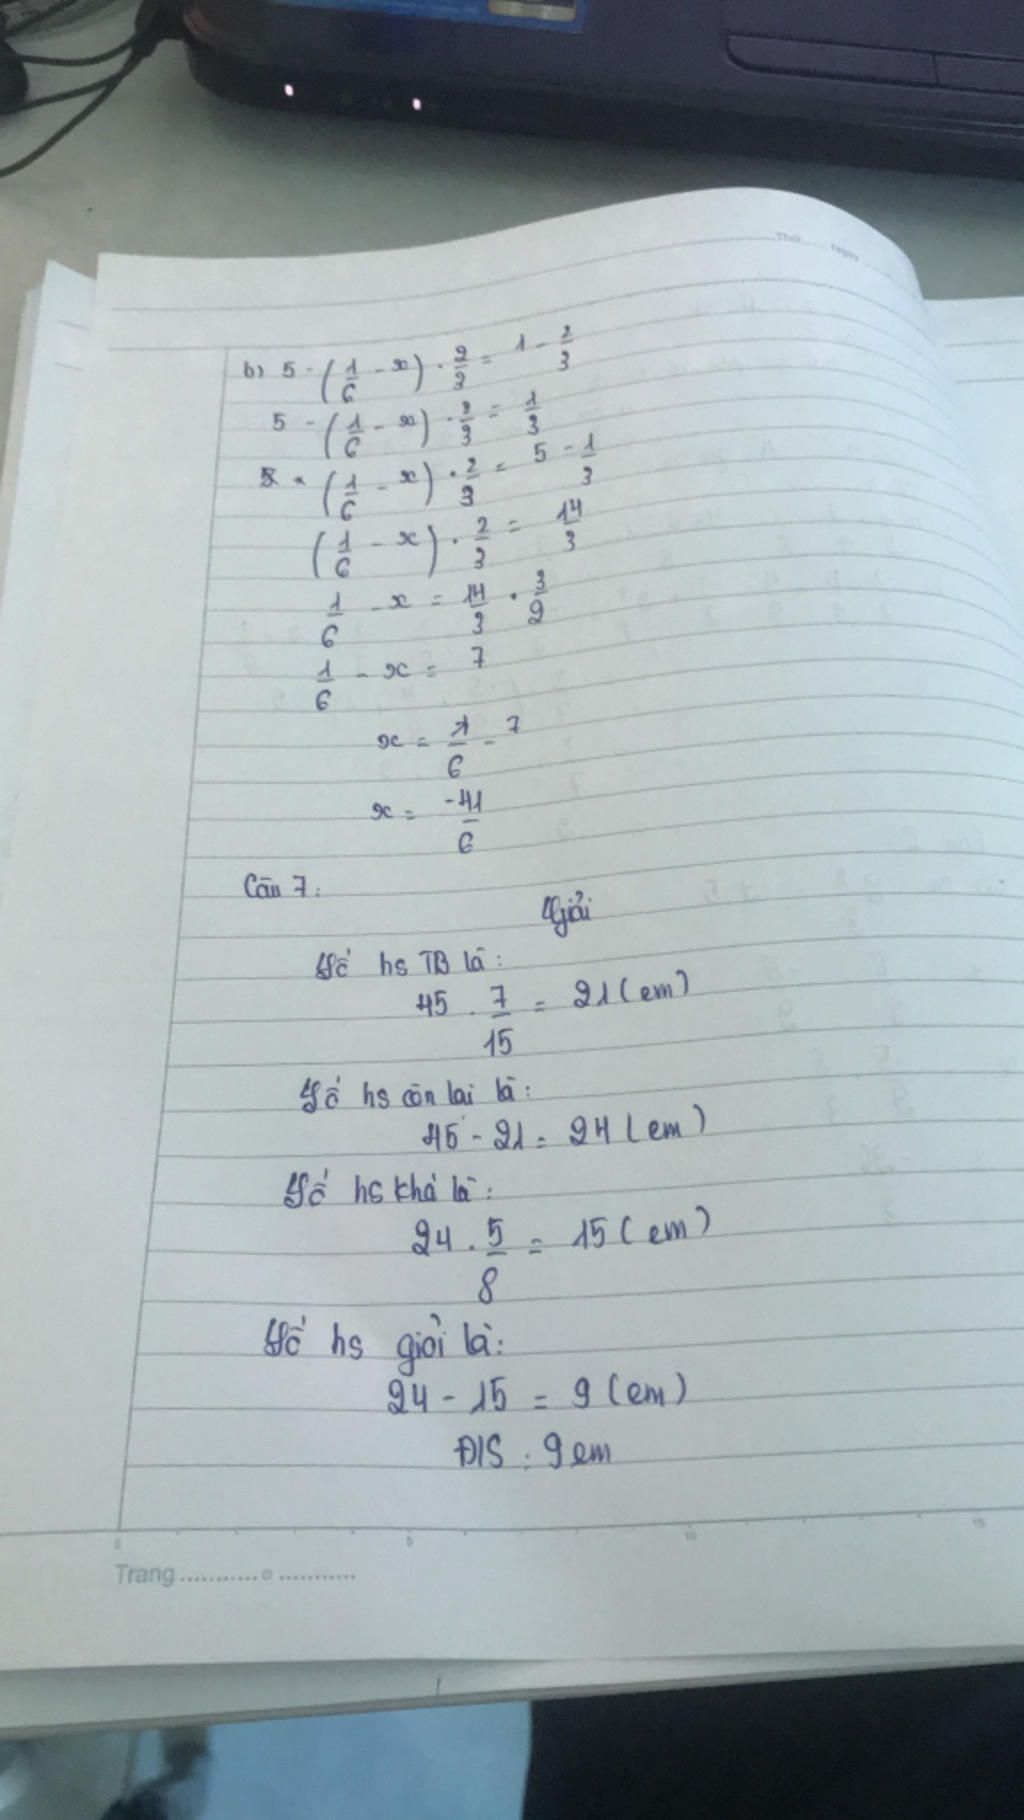 Thứ...... Ngày
b) 5 - (1/6 - x) . 2/3 = 1 - 2/3
5 - (1/6 - x) . 2/3 = 1/3
(1/6 - x) . 2/3 = 5 - 1/3
(1/6 - x) . 2/3 = 14/3
1/6 - x = 14/3 . 3/2
1/6 - x = 7
x = 1/6 - 7
x = -41/6
Câu 7:
Giải
Số hs TB là:
45 . 7/15 = 21 (em)
Số hs còn lại là:
45 - 21 = 24 (em)
Số hs khá là:
24 . 5/8 = 15 (em)
Số hs giỏi là:
24 - 15 = 9 (em)
Đ/S : 9 em
0 5 10 15
Trang